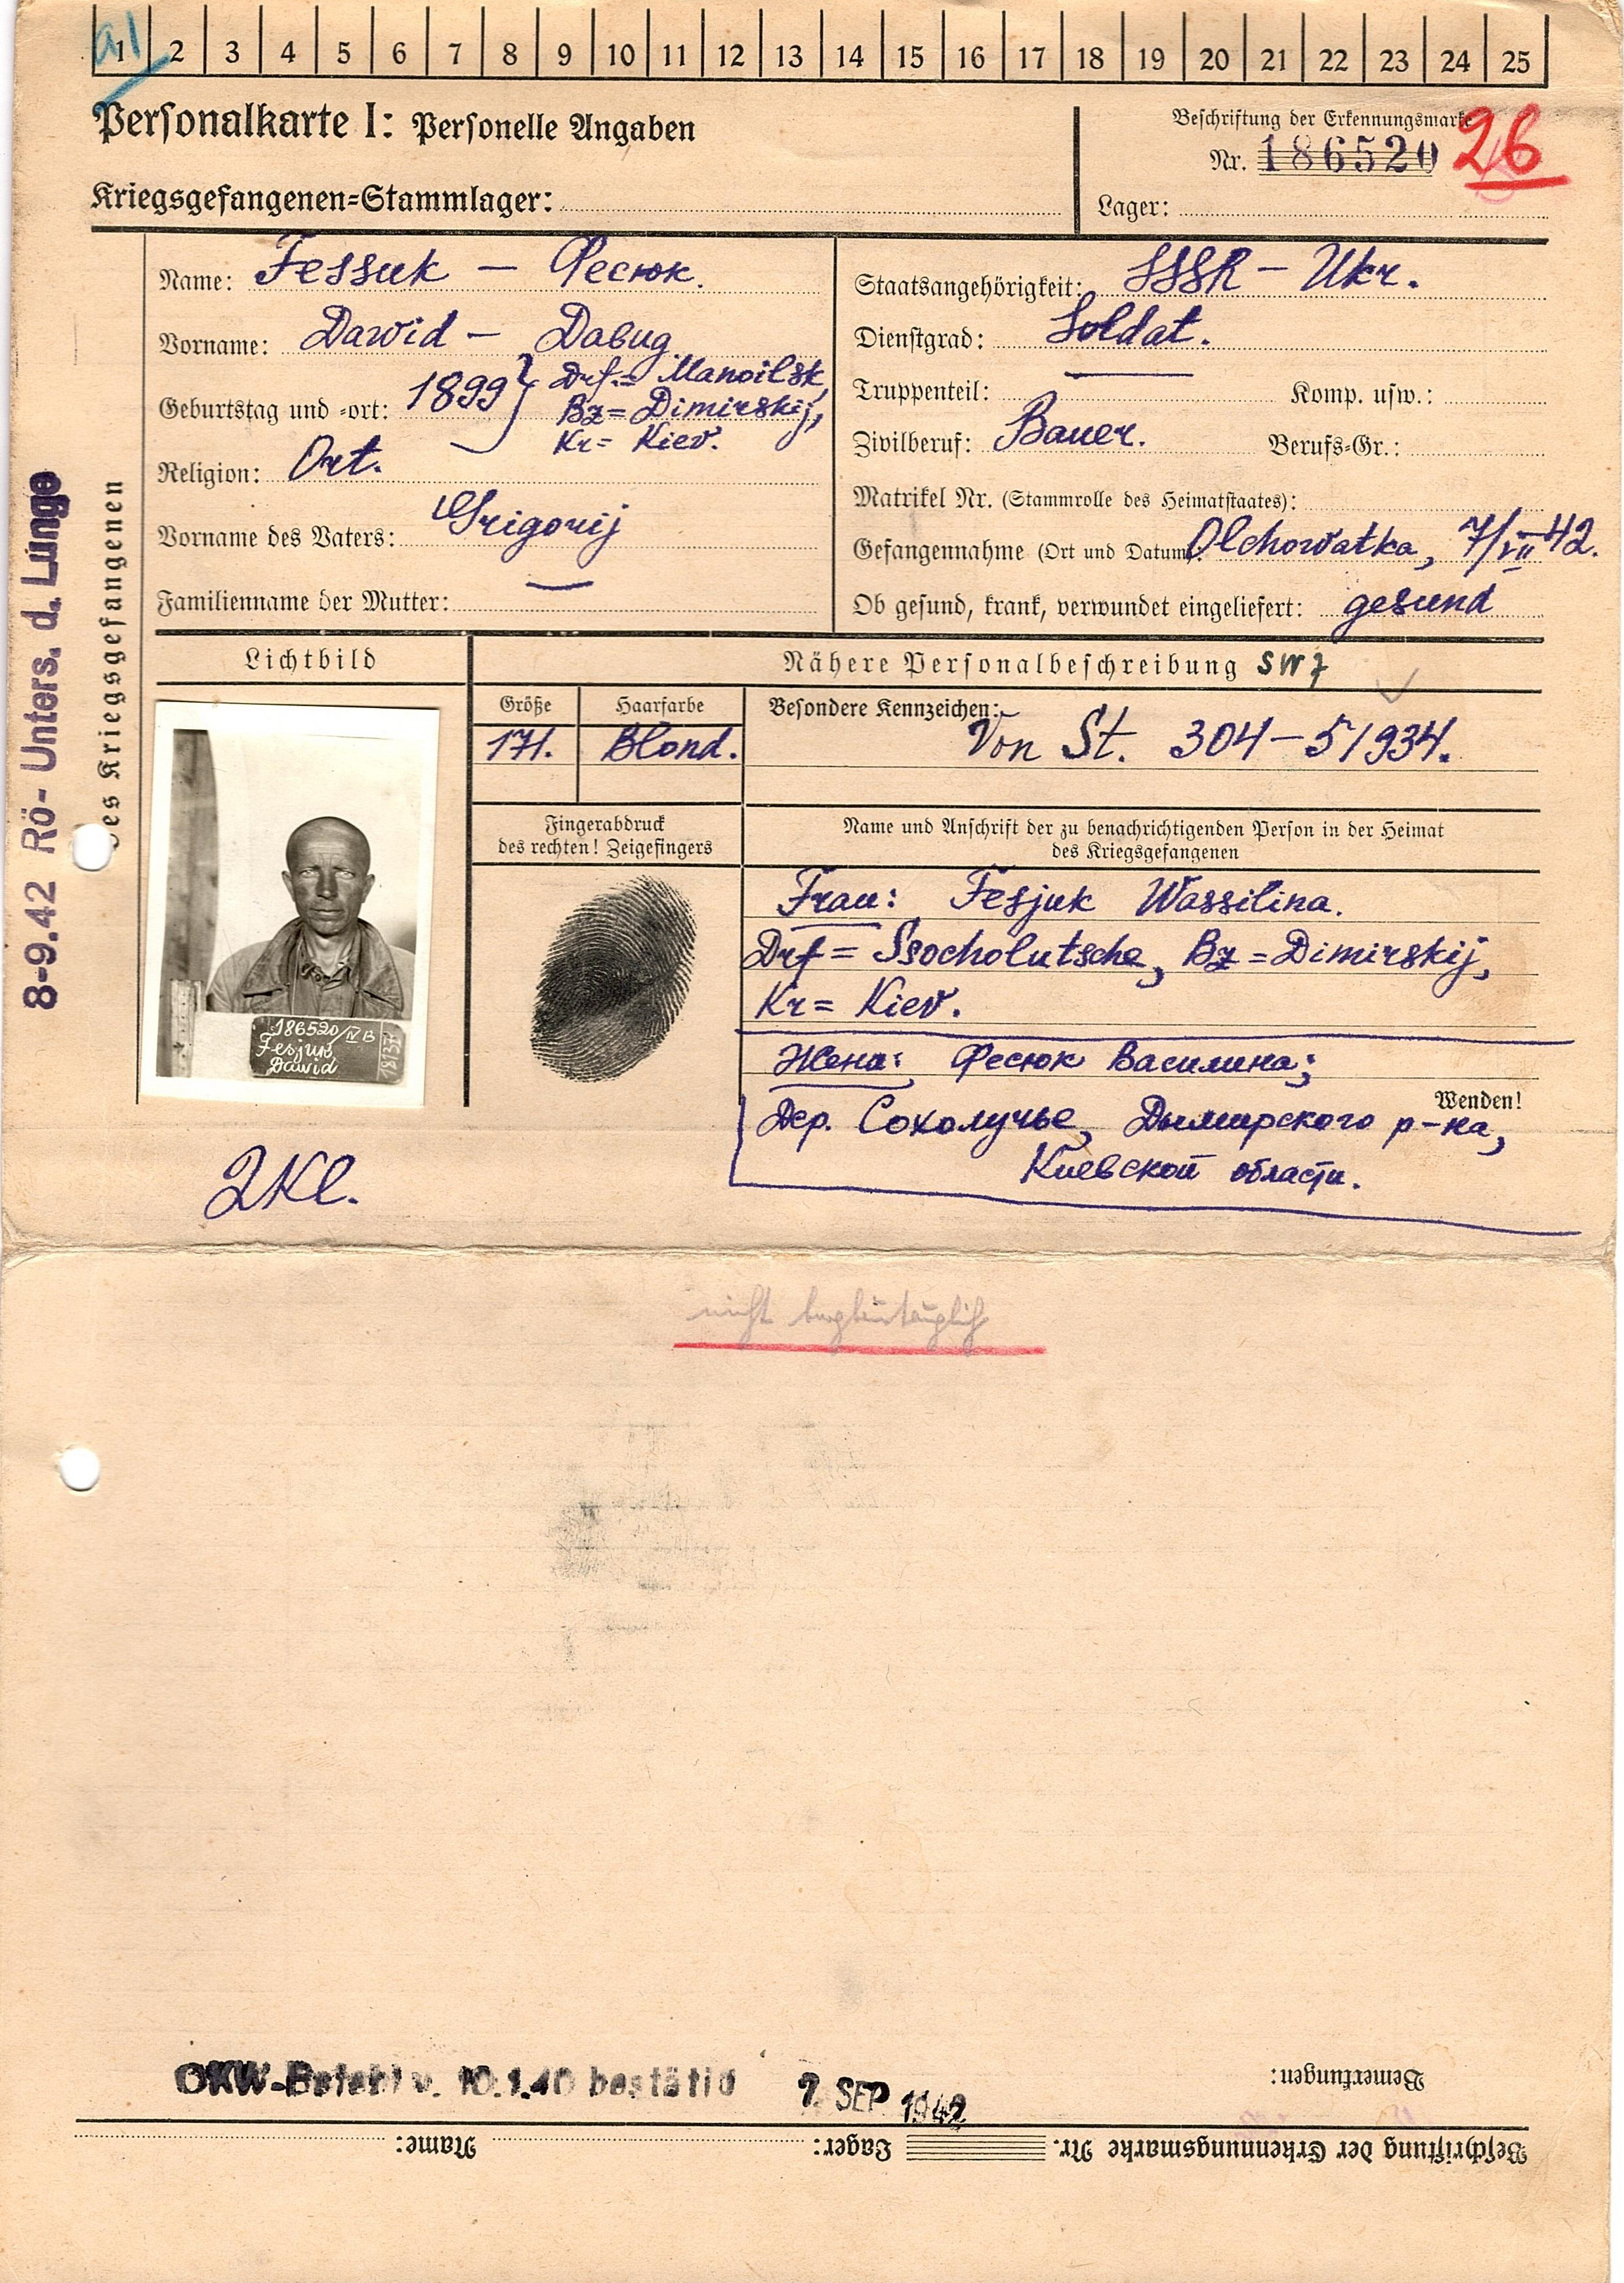 a1
1 2 3 4 5 6 7 8 9 10 11 12 13 14 15 16 17 18 19 20 21 22 23 24 25
Personalkarte I: Personelle Angaben
Kriegsgefangenen=Stammlager:
Beschriftung der Erkennungsmarke
Nr. 186520 26
Lager:
8-9.42 Rö- Unters. d. Lunge
des Kriegsgefangenen
Name: Fessuk — Фесюк.
Vorname: Dawid — Давид
Geburtstag und =ort: 1899 } Drf.= Manoilsk,
Bz= Dimirskij,
Kr= Kiev.
Religion: Ort.
Vorname des Vaters: Grigorij
Familienname der Mutter: —
Staatsangehörigkeit: SSSR — Ukr.
Dienstgrad: Soldat.
Truppenteil: — Komp. usw.:
Zivilberuf: Bauer. Berufs=Gr.:
Matrikel Nr. (Stammrolle des Heimatstaates):
Gefangennahme (Ort und Datum): Olchowatka, 7/VII 42.
Ob gesund, krank, verwundet eingeliefert: gesund
Lichtbild
Nähere Personalbeschreibung SW7
Größe Haarfarbe
171. Blond.
Besondere Kennzeichen:
Von St. 304-51934.
Fingerabdruck
des rechten! Zeigefingers
Name und Anschrift der zu benachrichtigenden Person in der Heimat
des Kriegsgefangenen
Frau: Fesjuk Wassilina.
Drf = Ssocholutsche, Bz = Dimirskij,
Kr= Kiev.
Жена: Фесюк Василина;
Wenden!
Дер. Сохолучье, Дымирского р-на,
Киевской области.
186520/IV B
Fesjuk
Dawid
2Kl.
nicht bergbautauglich
OKW-Befehl v. 10.1.40 bestätig
7. SEP 1942
Bemerkungen:
Beschriftung der Erkennungsmarke Nr. Lager: Name: